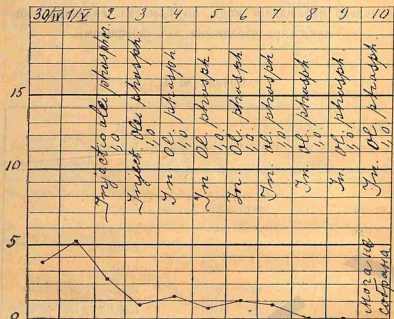 30/IV 1/V 2 3 4 5 6 7 8 9 10
15
10
5
0
Injectio olei phosphor. 1,0
Inject. Olei phosph. 1,0
In. Ol. phosph. 1,0
In Ol. phosph. 1,0
In. Ol. phosph. 1,0
In. Ol. phosph. 1,0
In. Ol. phosph. 1,0
In. Ol. phosph. 1,0
In. Ol. phosph. 1,0
Моча не
собрана